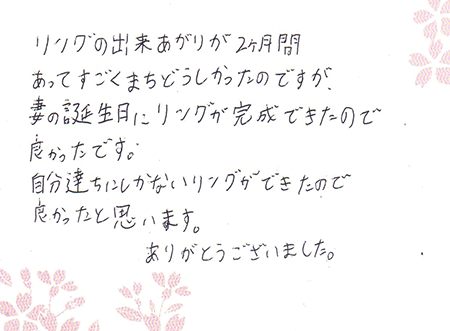 リングの出来あがりが2ヶ月間
あってすごくまちどうしかったのですが、
妻の誕生日にリングが完成できたので
良かったです。
自分達にしかないリングができたので
良かったと思います。
ありがとうございました。